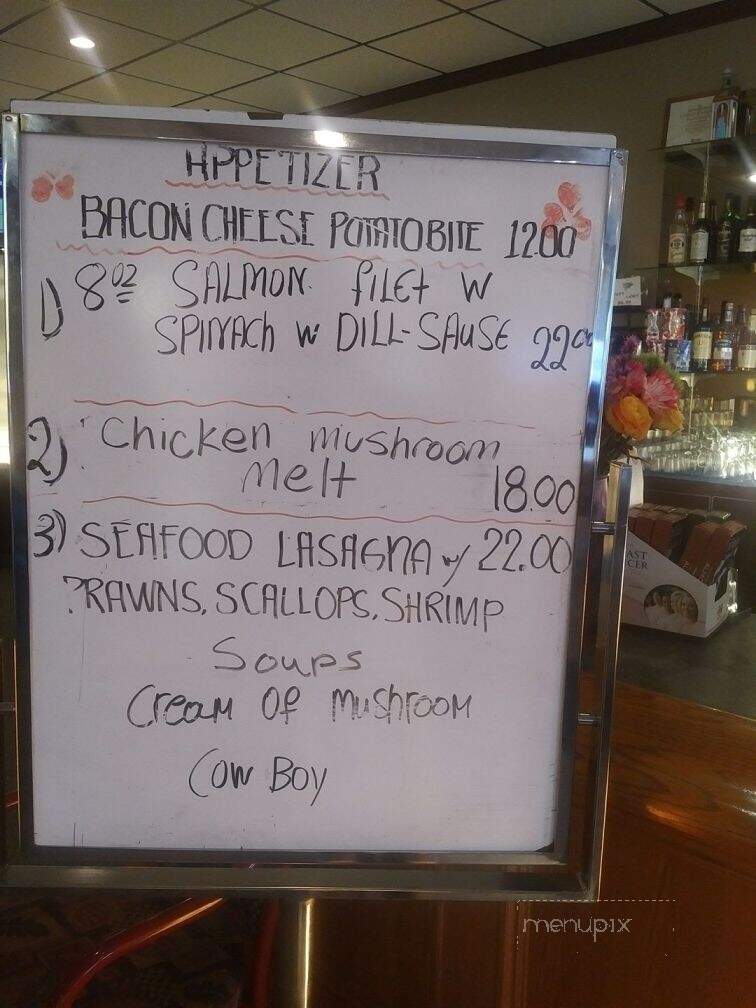 APPETIZER
BACON CHEESE POTATO BITE 12.00
1) 8oz SALMON FILET W
SPINACH W DILL-SAUSE 22.00
2) Chicken mushroom
melt 18.00
3) SEAFOOD LASAGNA w/ 22.00
PRAWNS, SCALLOPS, SHRIMP
Soups
Cream Of Mushroom
Cow Boy
menupix